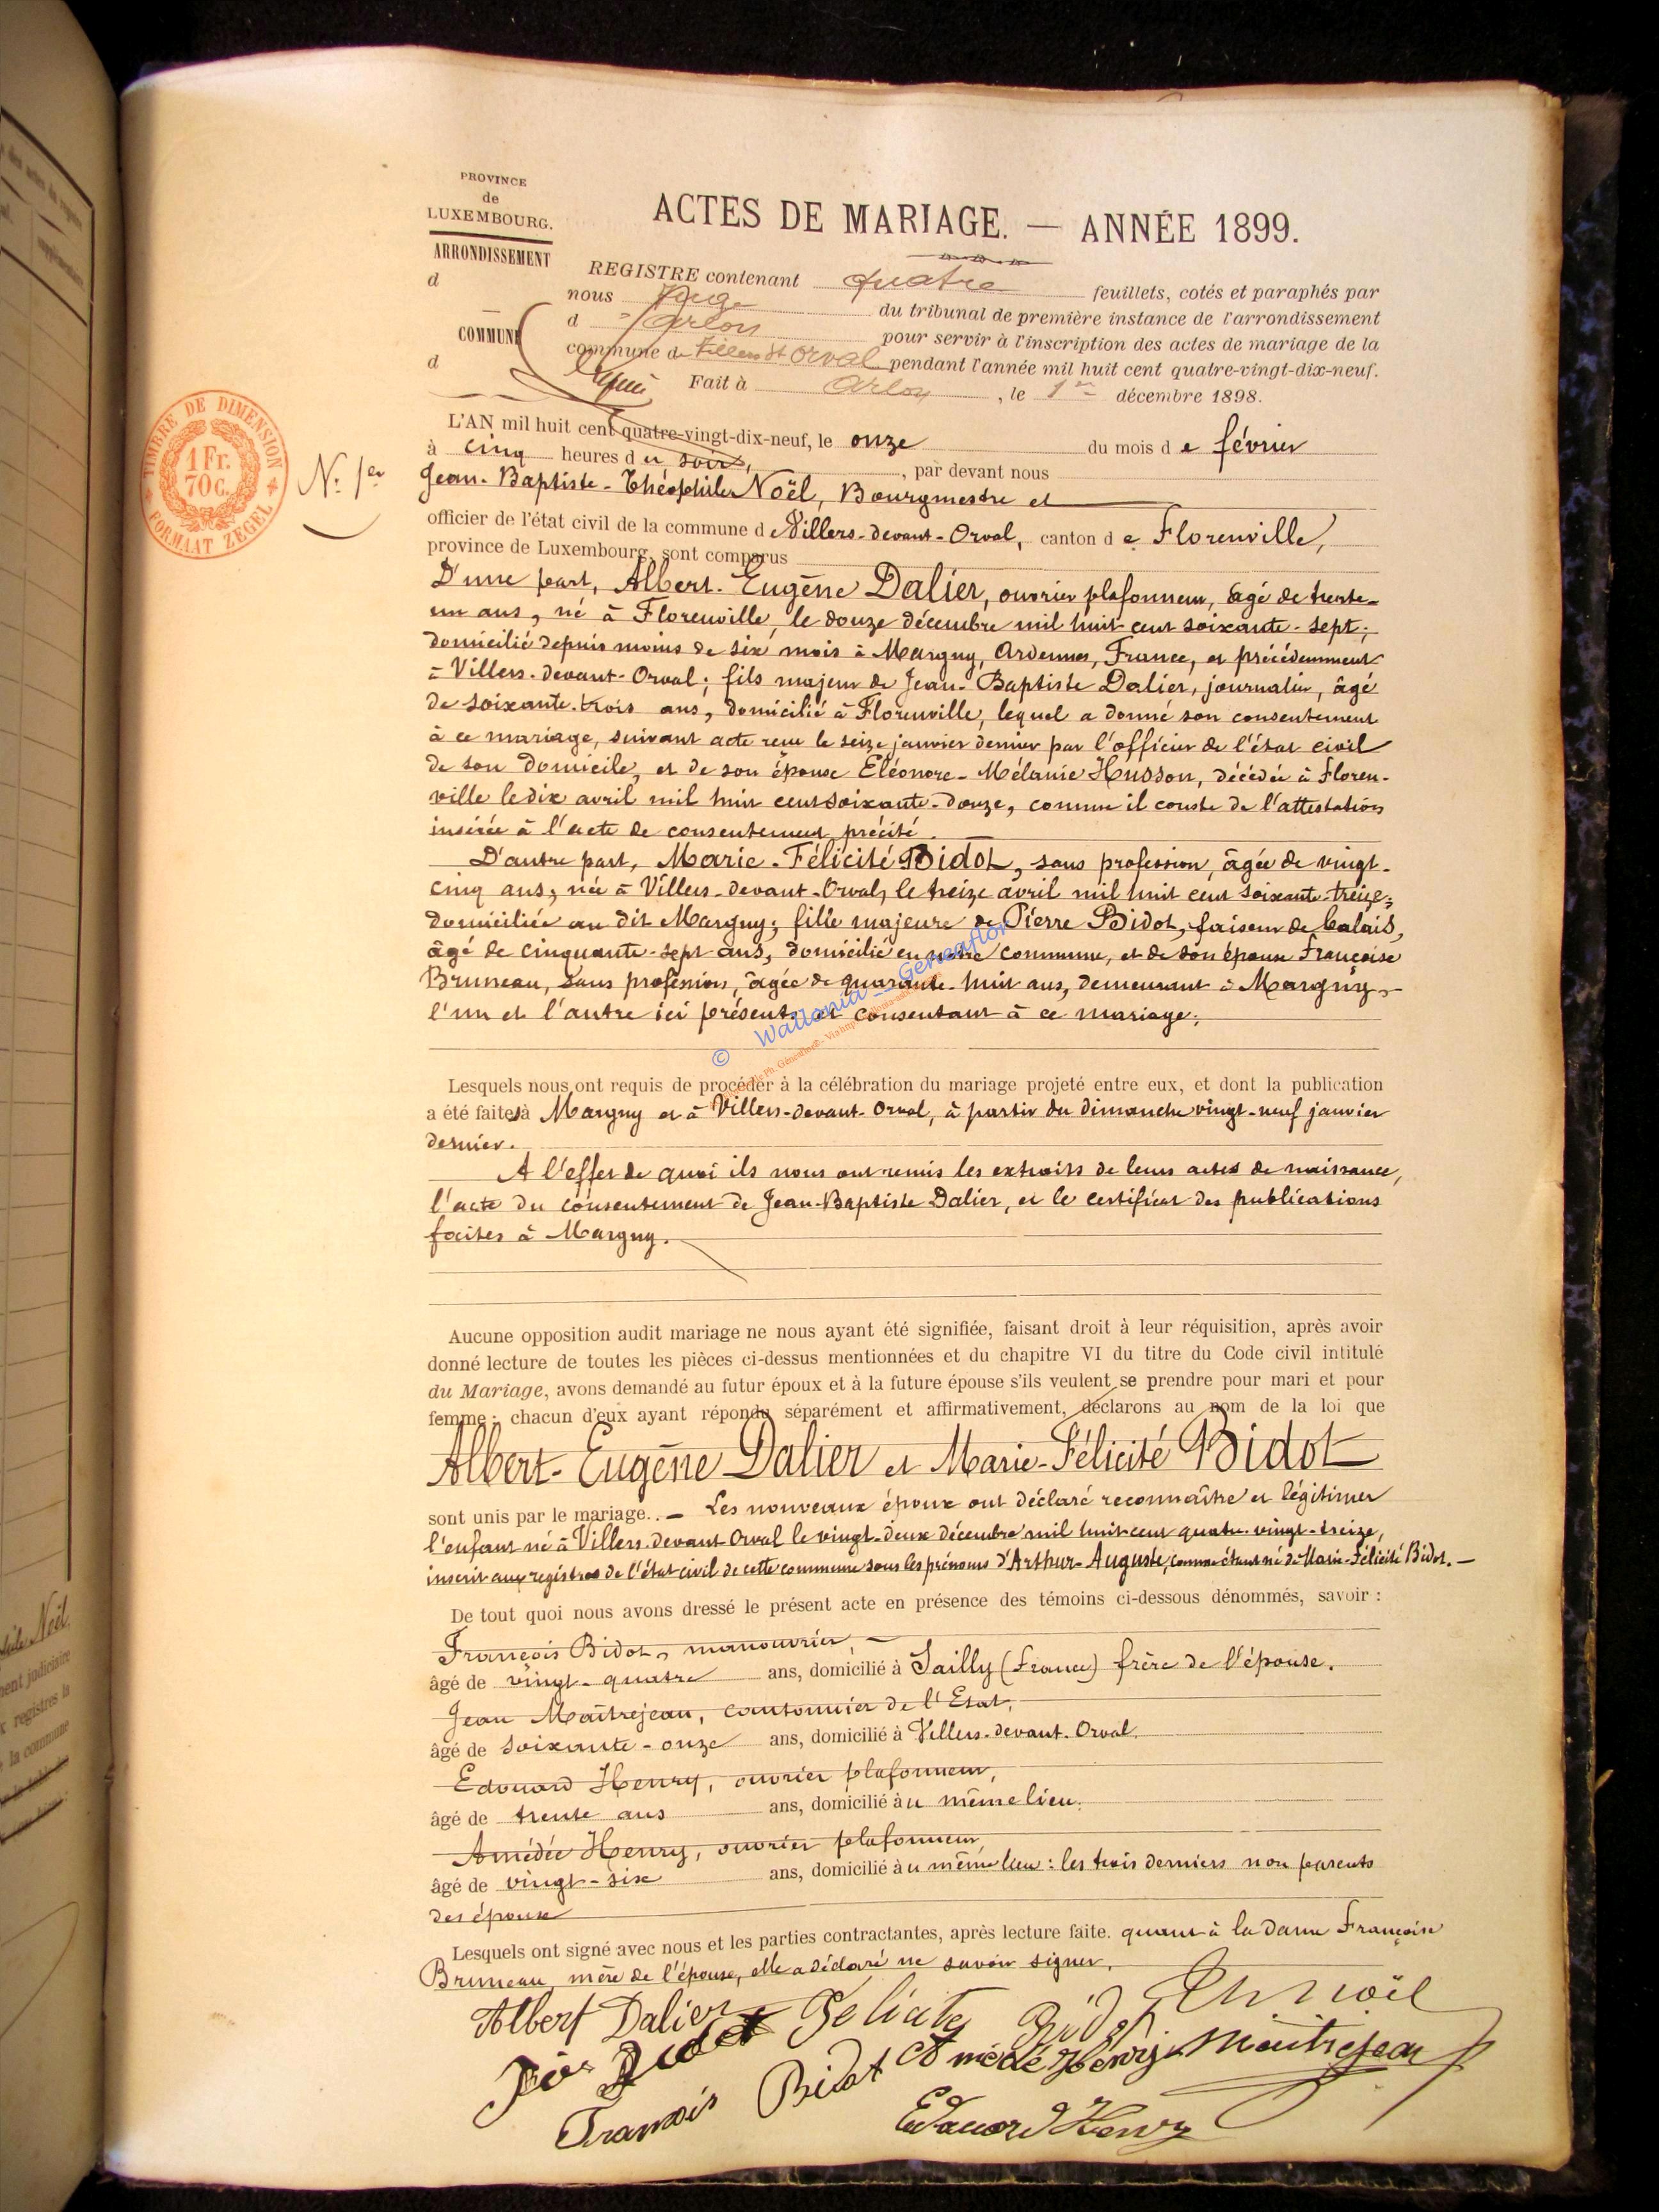 PROVINCE
de
LUXEMBOURG.
ARRONDISSEMENT
d
COMMUNE
d
ACTES DE MARIAGE. — ANNÉE 1899.
REGISTRE contenant quatre feuillets, cotés et paraphés par
nous Juge du tribunal de première instance de l'arrondissement
d'Arlon pour servir à l'inscription des actes de mariage de la
commune de Villers dt Orval pendant l'année mil huit cent quatre-vingt-dix-neuf.
Fait à Arlon, le 1er décembre 1898.
TIMBRE DE DIMENSION
1 Fr.
70 C.
FORMAAT ZEGEL
N: 1er
L'AN mil huit cent quatre-vingt-dix-neuf, le onze du mois de février
à cinq heures du soir, par devant nous
Jean-Baptiste-Théophile Noël, Bourgmestre et
officier de l'état civil de la commune de Villers-devant-Orval, canton de Florenville,
province de Luxembourg, sont comparus
D'une part, Albert-Eugène Dalier, ouvrier plafonneur, âgé de trente-
un ans, né à Florenville, le douze décembre mil huit cent soixante-sept;
domicilié depuis moins de six mois à Margny, Ardennes, France, et précédemment
à Villers-devant-Orval; fils majeur de Jean-Baptiste Dalier, journalier, âgé
de soixante-trois ans, domicilié à Florenville, lequel a donné son consentement
à ce mariage, suivant acte reçu le seize janvier dernier par l'officier de l'état civil
de son domicile, et de son épouse Eléonore-Mélanie Husson, décédée à Floren-
ville le dix avril mil huit cent soixante-douze, comme il conste de l'attestation
insérée à l'acte de consentement précité.
D'autre part, Marie-Félicité Bidot, sans profession, âgée de vingt-
cinq ans, née à Villers-devant-Orval, le treize avril mil huit cent soixante-treize;
domiciliée au dit Margny; fille majeure de Pierre Bidot, faiseur de balais,
âgé de cinquante-sept ans, domicilié en notre commune, et de son épouse Françoise
Bruneau, sans profession, âgée de quarante-huit ans, demeurant à Margny,
l'un et l'autre ici présents et consentant à ce mariage;
© Wallonia - Geneaflor
Lesquels nous ont requis de procéder à la célébration du mariage projeté entre eux, et dont la publication
a été faite à Margny et à Villers-devant-Orval, à partir du dimanche vingt-neuf janvier
dernier.
A l'effet de quoi ils nous ont remis les extraits de leurs actes de naissance,
l'acte du consentement de Jean-Baptiste Dalier, et le certificat des publications
faites à Margny.
Aucune opposition audit mariage ne nous ayant été signifiée, faisant droit à leur réquisition, après avoir
donné lecture de toutes les pièces ci-dessus mentionnées et du chapitre VI du titre du Code civil intitulé
du Mariage, avons demandé au futur époux et à la future épouse s'ils veulent se prendre pour mari et pour
femme: chacun d'eux ayant répondu séparément et affirmativement, déclarons au nom de la loi que
Albert-Eugène Dalier et Marie-Félicité Bidot
sont unis par le mariage. — Les nouveaux époux ont déclaré reconnaître et légitimer
l'enfant né à Villers-devant-Orval le vingt-deux décembre mil huit cent quatre-vingt-treize,
inscrit aux registres de l'état civil de cette commune sous les prénoms d'Arthur-Auguste, comme étant né de Marie-Félicité Bidot. —
De tout quoi nous avons dressé le présent acte en présence des témoins ci-dessous dénommés, savoir :
François Bidot, manouvrier, —
âgé de vingt-quatre ans, domicilié à Sailly (France) frère de l'épouse.
Jean Maîtrejean, cantonnier de l'Etat,
âgé de soixante-onze ans, domicilié à Villers-devant-Orval.
Edouard Henry, ouvrier plafonneur,
âgé de trente ans ans, domicilié au même lieu.
Amédée Henry, ouvrier plafonneur,
âgé de vingt-six ans, domicilié au même lieu : les trois derniers non parents
des époux
Lesquels ont signé avec nous et les parties contractantes, après lecture faite. quant à la dame Françoise
Bruneau, mère de l'épouse, elle a déclaré ne savoir signer.
Albert Dalier Félicité Bidot Th Noël
Bidot Amédé Henry Maitrejean
François Bidot
Edouard Henry